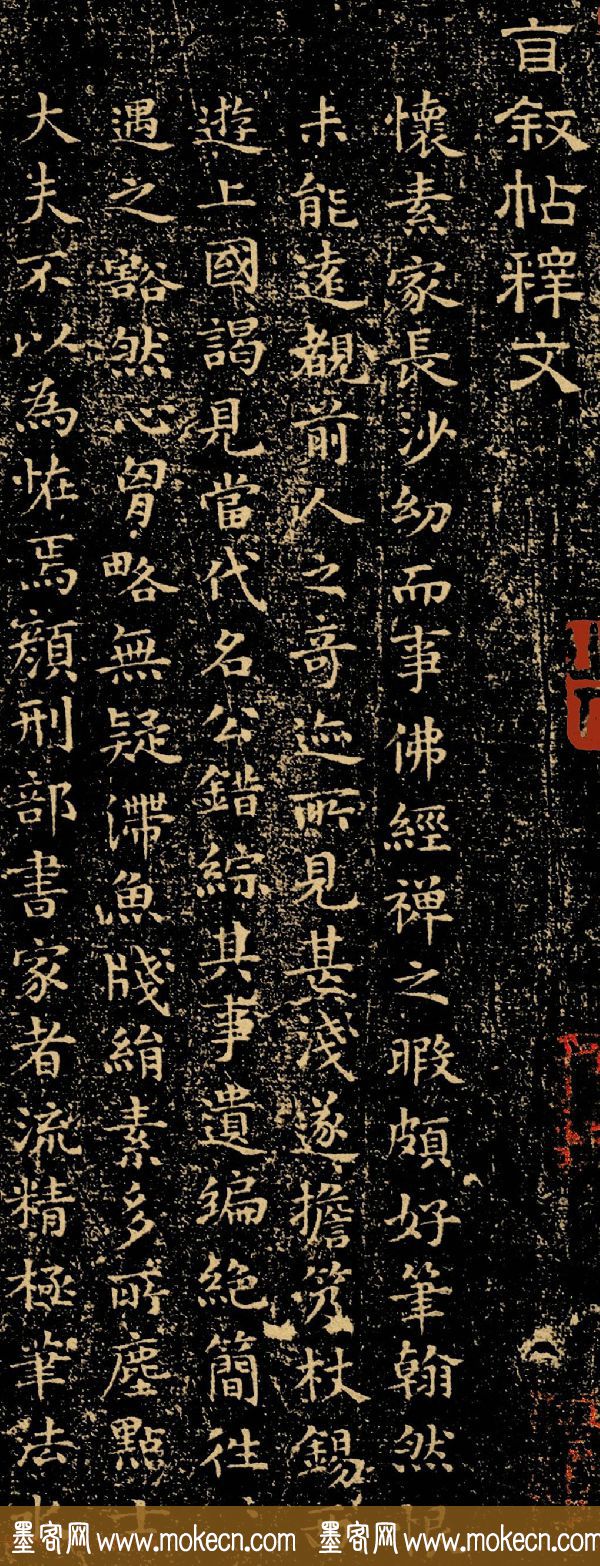 自叙帖釋文
懷素家長沙幼而事佛經禅之暇頗好筆翰然恨
未能遠覩前人之奇迹所見甚淺遂擔笈杖錫
遊上國謁見當代名公錯綜其事遺編絶簡徃
遇之豁然心胷略無疑滯魚牋絹素多所塵點士
大夫不以為恠焉顔刑部書家者流精極筆法
墨客网 www.mokecn.com 墨客网 www.mokecn.com